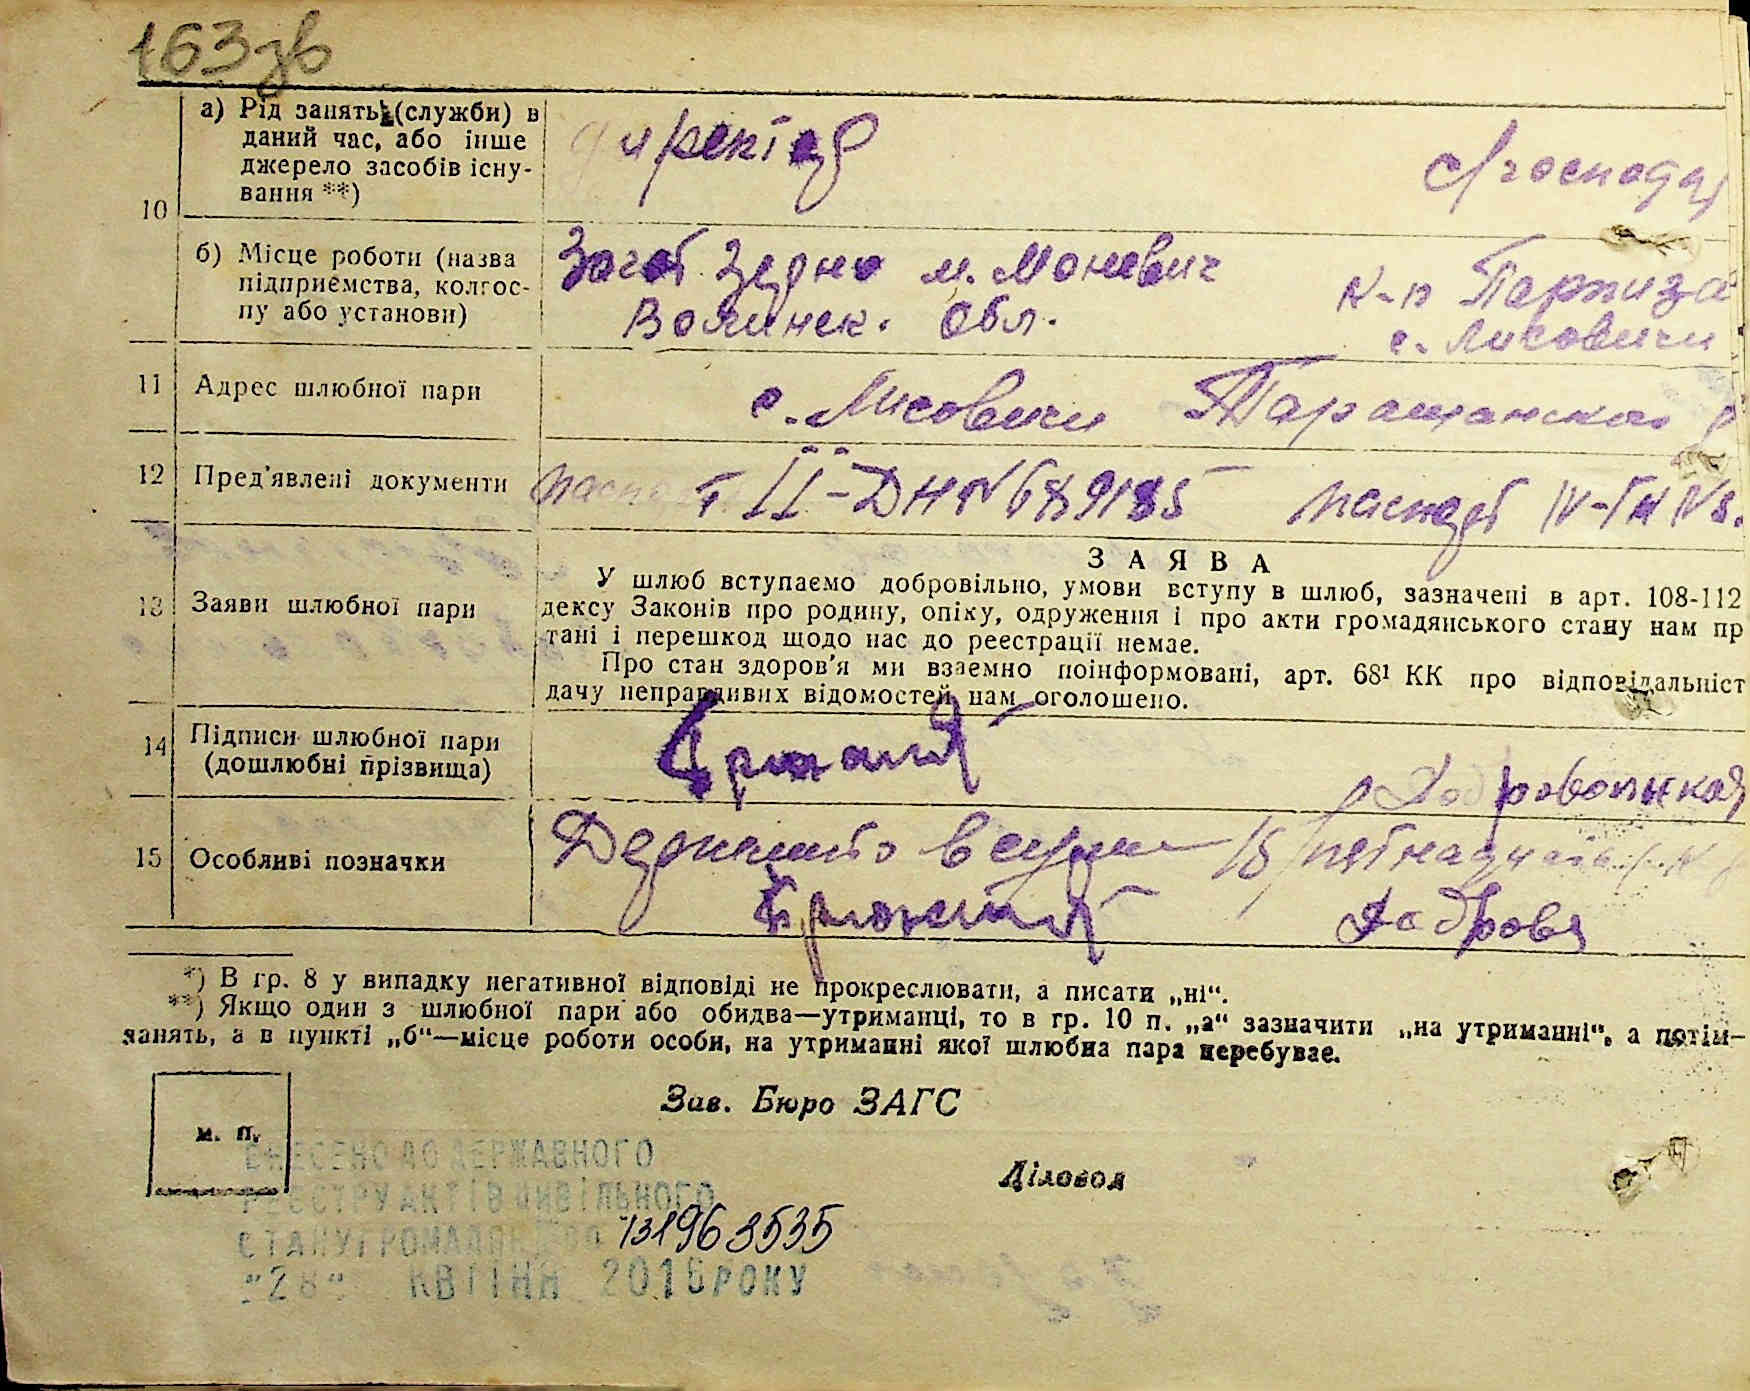 163зв
а) Рід занять (служби) в
даний час, або інше
джерело засобів існу-
вання **)
директор
с/господар
10
б) Місце роботи (назва
підприємства, колгос-
пу або установи)
Загот Зерно м. Маневич
Волинск. Обл.
к-п Парижа
с. Лисовичи
11 Адрес шлюбної пари
с. Лисовичи Таращанского р
12 Пред'явлені документи
паспорт II-ДН № 689185 паспорт IV-ГН №
13 Заяви шлюбної пари
ЗАЯВА
У шлюб вступаємо добровільно, умови вступу в шлюб, зазначені в арт. 108-112
дексу Законів про родину, опіку, одруження і про акти громадянського стану нам пр
тані і перешкод щодо нас до реєстрації немає.
Про стан здоров'я ми взаємно поінформовані, арт. 68¹ КК про відповідальніст
дачу неправдивих відомостей нам оголошено.
14 Підписи шлюбної пари
(дошлюбні прізвища)
15 Особливі позначки
15 /пятнадцать/
*) В гр. 8 у випадку негативної відповіді не прокреслювати, а писати „ні“.
**) Якщо один з шлюбної пари або обидва—утриманці, то в гр. 10 п. „а“ зазначити „на утриманні“, а потім—
занять, а в пункті „б“—місце роботи особи, на утриманні якої шлюбна пара перебуває.
Зав. Бюро ЗАГС
м. п.
Діловод
ВНЕСЕНО ДО ДЕРЖАВНОГО
РЕЄСТРУ АКТІВ ЦИВІЛЬНОГО
СТАНУ ГРОМАДЯНСТВА 131963535
"28" КВІТНЯ 2016 РОКУ